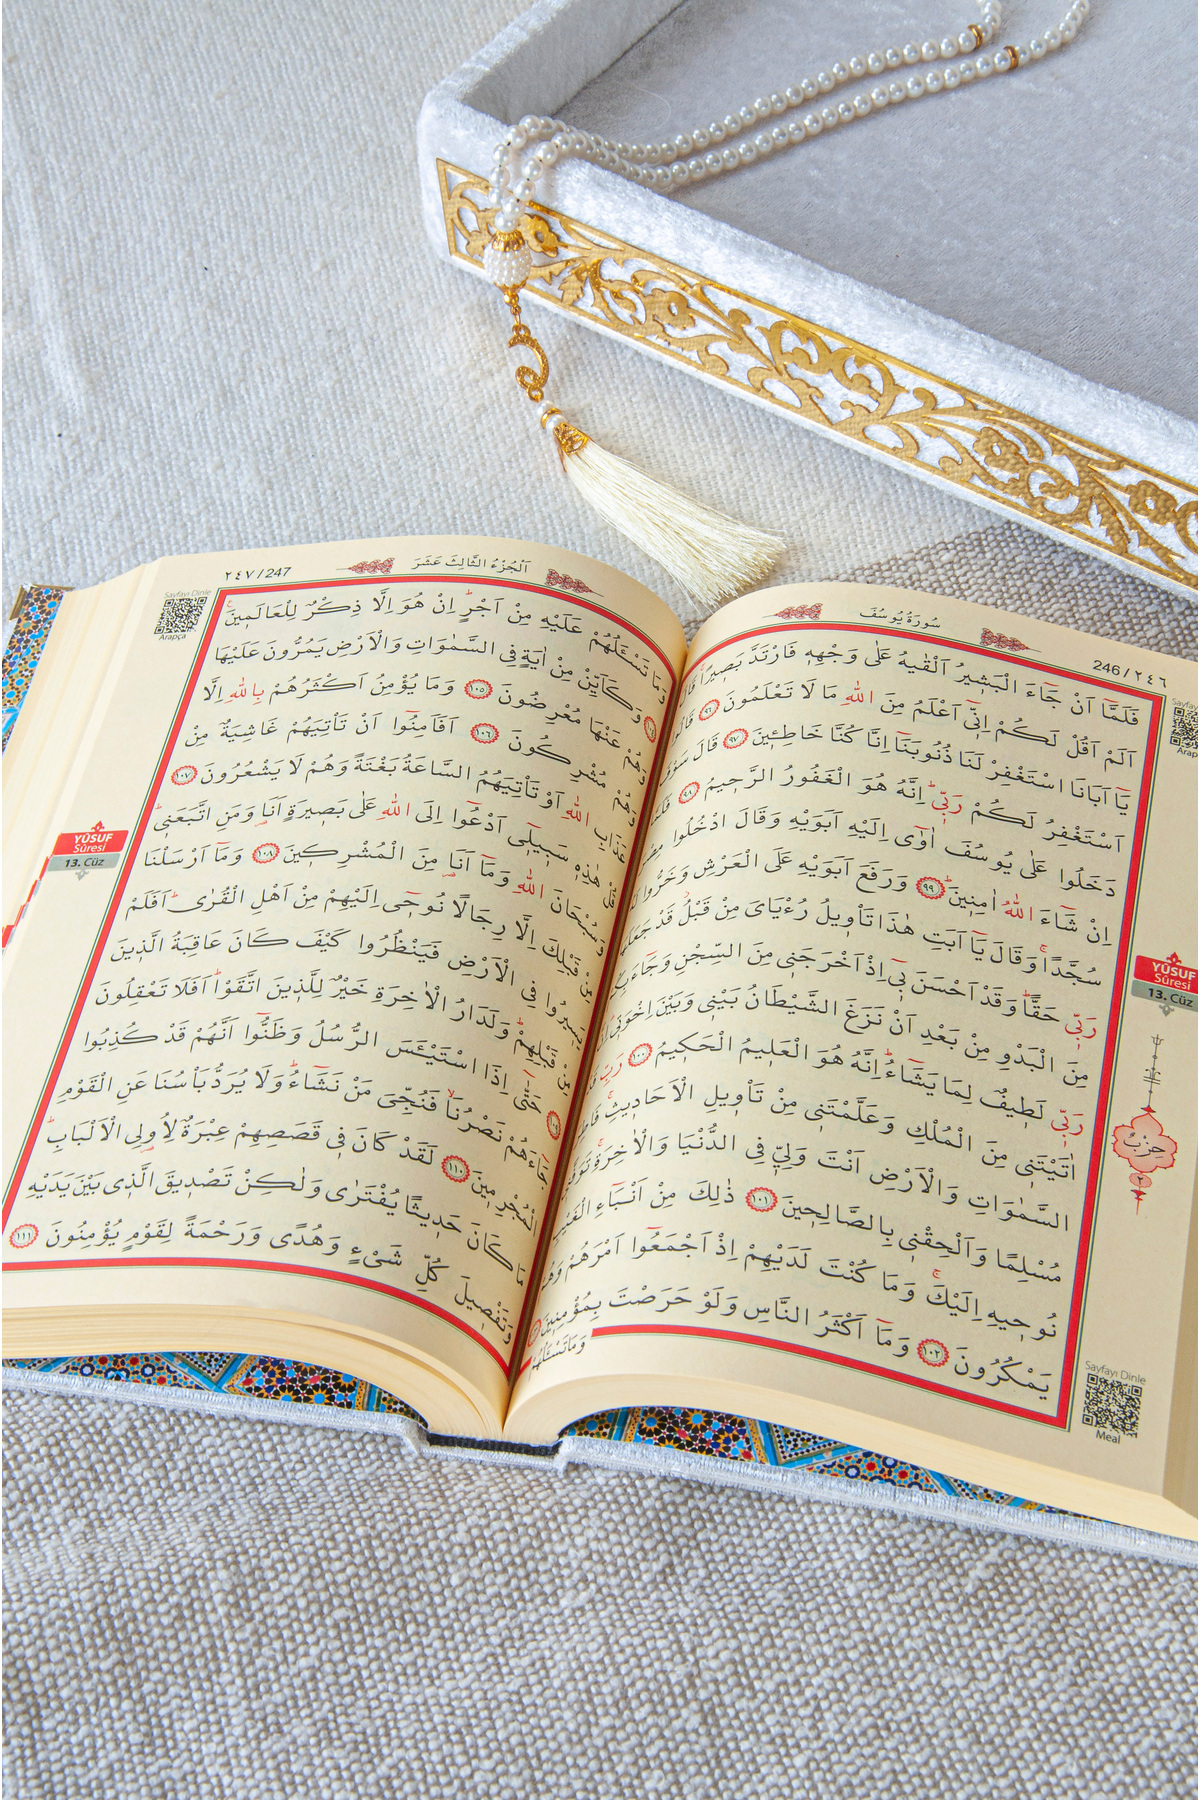 سُورَةُ يُوسُفَ
246 / ٢٤٦
فَلَمَّٓا اَنْ جَٓاءَ الْبَشٖيرُ اَلْقٰيهُ عَلٰى وَجْهِهٖ فَارْتَدَّ بَصٖيرًا قَالَ
اَلَمْ اَقُلْ لَكُمْ اِنّٖٓي اَعْلَمُ مِنَ اللهِ مَا لَا تَعْلَمُونَ ٩٦ قَالُوا
يَٓا اَبَانَا اسْتَغْفِرْ لَنَا ذُنُوبَنَٓا اِنَّا كُنَّا خَاطِـٖٔينَ ٩٧ قَالَ سَوْفَ
اَسْتَغْفِرُ لَكُمْ رَبّٖي اِنَّهُ هُوَ الْغَفُورُ الرَّحٖيمُ ٩٨
دَخَلُوا عَلٰى يُوسُفَ اٰوٰٓى اِلَيْهِ اَبَوَيْهِ وَقَالَ ادْخُلُوا مِصْرَ
اِنْ شَٓاءَ اللهُ اٰمِنٖينَ ٩٩ وَرَفَعَ اَبَوَيْهِ عَلَى الْعَرْشِ وَخَرُّوا
سُجَّدًا وَقَالَ يَٓا اَبَتِ هٰذَا تَأْوٖيلُ رُءْيَايَ مِنْ قَبْلُ قَدْ جَعَلَهَا
رَبّٖي حَقًّا وَقَدْ اَحْسَنَ بٖٓي اِذْ اَخْرَجَنٖي مِنَ السِّجْنِ وَجَٓاءَ
مِنَ الْبَدْوِ مِنْ بَعْدِ اَنْ نَزَغَ الشَّيْطَانُ بَيْنٖي وَبَيْنَ اِخْوَتٖي
رَبّٖي لَطٖيفٌ لِمَا يَشَٓاءُ اِنَّهُ هُوَ الْعَلٖيمُ الْحَكٖيمُ ١٠٠ رَبِّ
اٰتَيْتَنٖي مِنَ الْمُلْكِ وَعَلَّمْتَنٖي مِنْ تَأْوٖيلِ الْاَحَادٖيثِ
السَّمٰوَاتِ وَالْاَرْضِ اَنْتَ وَلِيّٖ فِي الدُّنْيَا وَالْاٰخِرَةِ
مُسْلِمًا وَاَلْحِقْنٖي بِالصَّالِحٖينَ ١٠١ ذٰلِكَ مِنْ اَنْبَٓاءِ الْغَيْبِ
نُوحٖيهِ اِلَيْكَ وَمَا كُنْتَ لَدَيْهِمْ اِذْ اَجْمَعُٓوا اَمْرَهُمْ وَهُمْ
يَمْكُرُونَ ١٠٢ وَمَٓا اَكْثَرُ النَّاسِ وَلَوْ حَرَصْتَ بِمُؤْمِنٖينَ
وَمَا تَسْـَٔلُهُمْ
YÛSUF
Sûresi
13. Cüz
حِزْبٌ
٢
Sayfayı Dinle
Meal
اَلْجُزْءُ الثَّالِثَ عَشَرَ
٢٤٧ / 247
وَمَا تَسْـَٔلُهُمْ عَلَيْهِ مِنْ اَجْرٍ اِنْ هُوَ اِلَّا ذِكْرٌ لِلْعَالَمٖينَ
وَكَاَيِّنْ مِنْ اٰيَةٍ فِي السَّمٰوَاتِ وَالْاَرْضِ يَمُرُّونَ عَلَيْهَا
وَهُمْ عَنْهَا مُعْرِضُونَ ١٠٥ وَمَا يُؤْمِنُ اَكْثَرُهُمْ بِاللهِ اِلَّا
وَهُمْ مُشْرِكُونَ ١٠٦ اَفَاَمِنُٓوا اَنْ تَأْتِيَهُمْ غَاشِيَةٌ مِنْ
عَذَابِ اللهِ اَوْ تَأْتِيَهُمُ السَّاعَةُ بَغْتَةً وَهُمْ لَا يَشْعُرُونَ ١٠٧
هٰذِهٖ سَبٖيلٖٓي اَدْعُٓوا اِلَى اللهِ عَلٰى بَصٖيرَةٍ اَنَا وَمَنِ اتَّبَعَنٖي
وَسُبْحَانَ اللهِ وَمَٓا اَنَا مِنَ الْمُشْرِكٖينَ ١٠٨ وَمَٓا اَرْسَلْنَا
قَبْلِكَ اِلَّا رِجَالًا نُوحٖٓي اِلَيْهِمْ مِنْ اَهْلِ الْقُرٰى اَفَلَمْ
يَسٖيرُوا فِي الْاَرْضِ فَيَنْظُرُوا كَيْفَ كَانَ عَاقِبَةُ الَّذٖينَ
قَبْلِهِمْ وَلَدَارُ الْاٰخِرَةِ خَيْرٌ لِلَّذٖينَ اتَّقَوْا اَفَلَا تَعْقِلُونَ
حَتّٰٓى اِذَا اسْتَيْـَٔسَ الرُّسُلُ وَظَنُّٓوا اَنَّهُمْ قَدْ كُذِبُوا
جَٓاءَهُمْ نَصْرُنَا فَنُجِّيَ مَنْ نَشَٓاءُ وَلَا يُرَدُّ بَأْسُنَا عَنِ الْقَوْمِ
الْمُجْرِمٖينَ ١١٠ لَقَدْ كَانَ فٖي قَصَصِهِمْ عِبْرَةٌ لِاُولِي الْاَلْبَابِ
مَا كَانَ حَدٖيثًا يُفْتَرٰى وَلٰكِنْ تَصْدٖيقَ الَّذٖي بَيْنَ يَدَيْهِ
وَتَفْصٖيلَ كُلِّ شَيْءٍ وَهُدًى وَرَحْمَةً لِقَوْمٍ يُؤْمِنُونَ ١١١
Sayfayı Dinle
Arapça
YÛSUF
Sûresi
13. Cüz